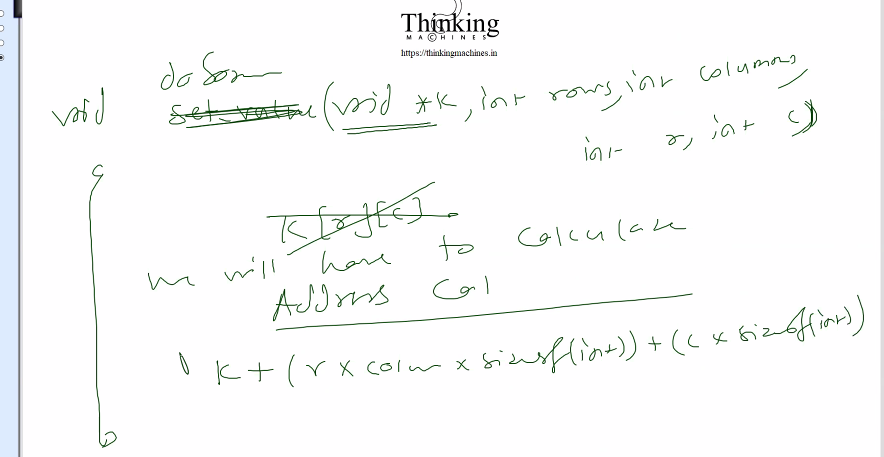 Thinking
MACHINES
https://thinkingmachines.in
doSom
void set_value (void *k, int rows, int columns,
int r, int c)
K[r][c]
we will have to calculate
Address Cal
K + (r x colum x sizeof(int)) + (c x sizeof(int))